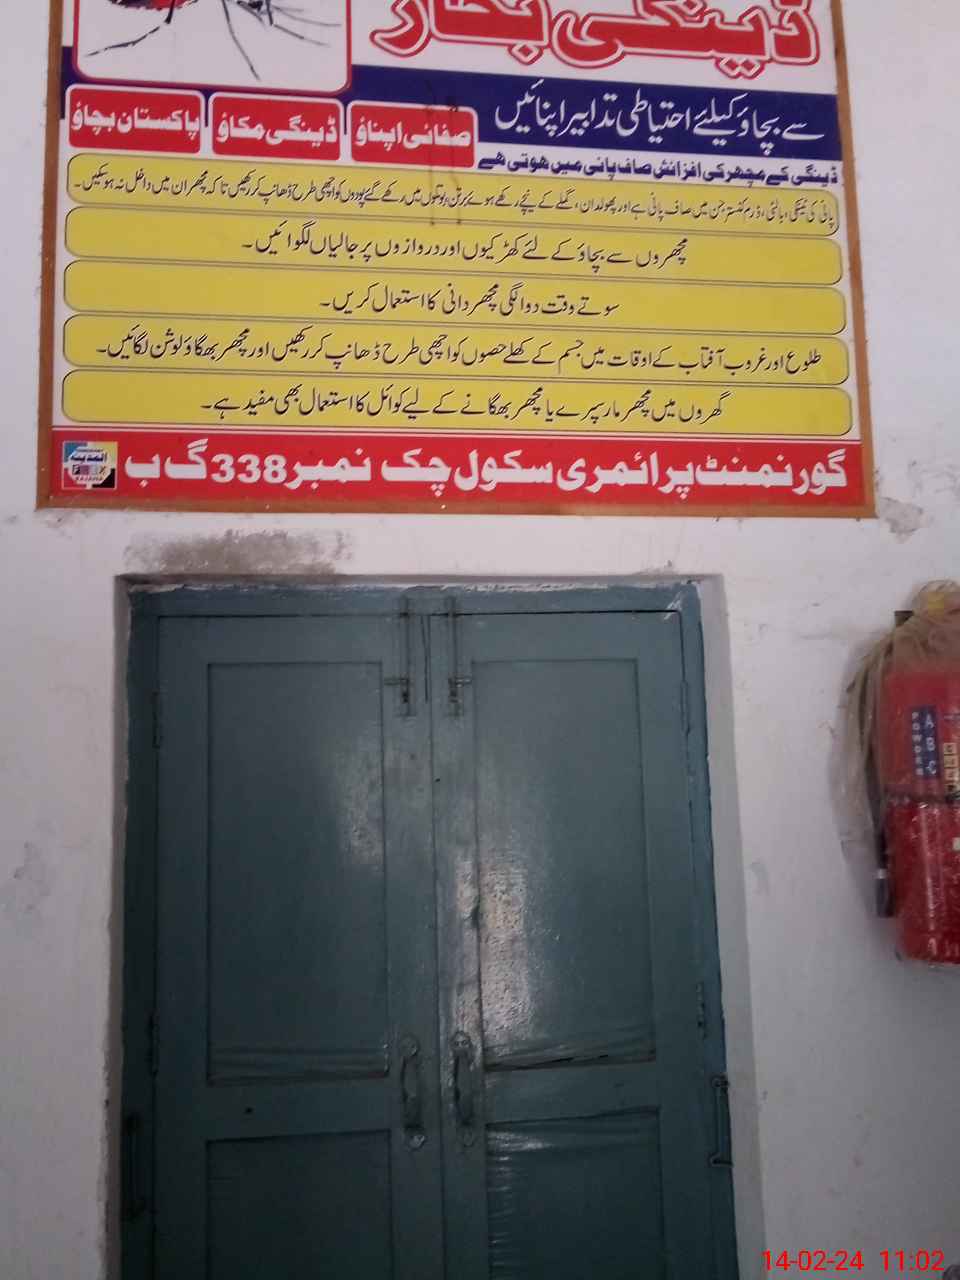 ڈینگی بخار
سے بچاؤ کیلئے احتیاطی تدابیر اپنائیں
صفائی اپناؤ
ڈینگی مکاؤ
پاکستان بچاؤ
ڈینگی کے مچھر کی افزائش صاف پانی میں ہوتی ہے
پانی کی ٹینکی، بالٹی، ڈرم کنستر جن میں صاف پانی ہے اور پھولدان، گملے کے نیچے رکھے ہوئے برتن، بوتلوں میں رکھے گئے پودوں کو اچھی طرح ڈھانپ کر رکھیں تا کہ مچھر ان میں داخل نہ ہوسکیں۔
مچھروں سے بچاؤ کے لئے کھڑکیوں اور دروازوں پر جالیاں لگوائیں۔
سوتے وقت دوا لگی مچھردانی کا استعمال کریں۔
طلوع اور غروب آفتاب کے اوقات میں جسم کے کھلے حصوں کو اچھی طرح ڈھانپ کر رکھیں اور مچھر بھگاؤ لوشن لگائیں۔
گھروں میں مچھر مار سپرے یا مچھر بھگانے کے لیے کوائل کا استعمال بھی مفید ہے۔
گورنمنٹ پرائمری سکول چک نمبر 338 گ ب
المدینہ
ABC
POWDER
14-02-24 11:02